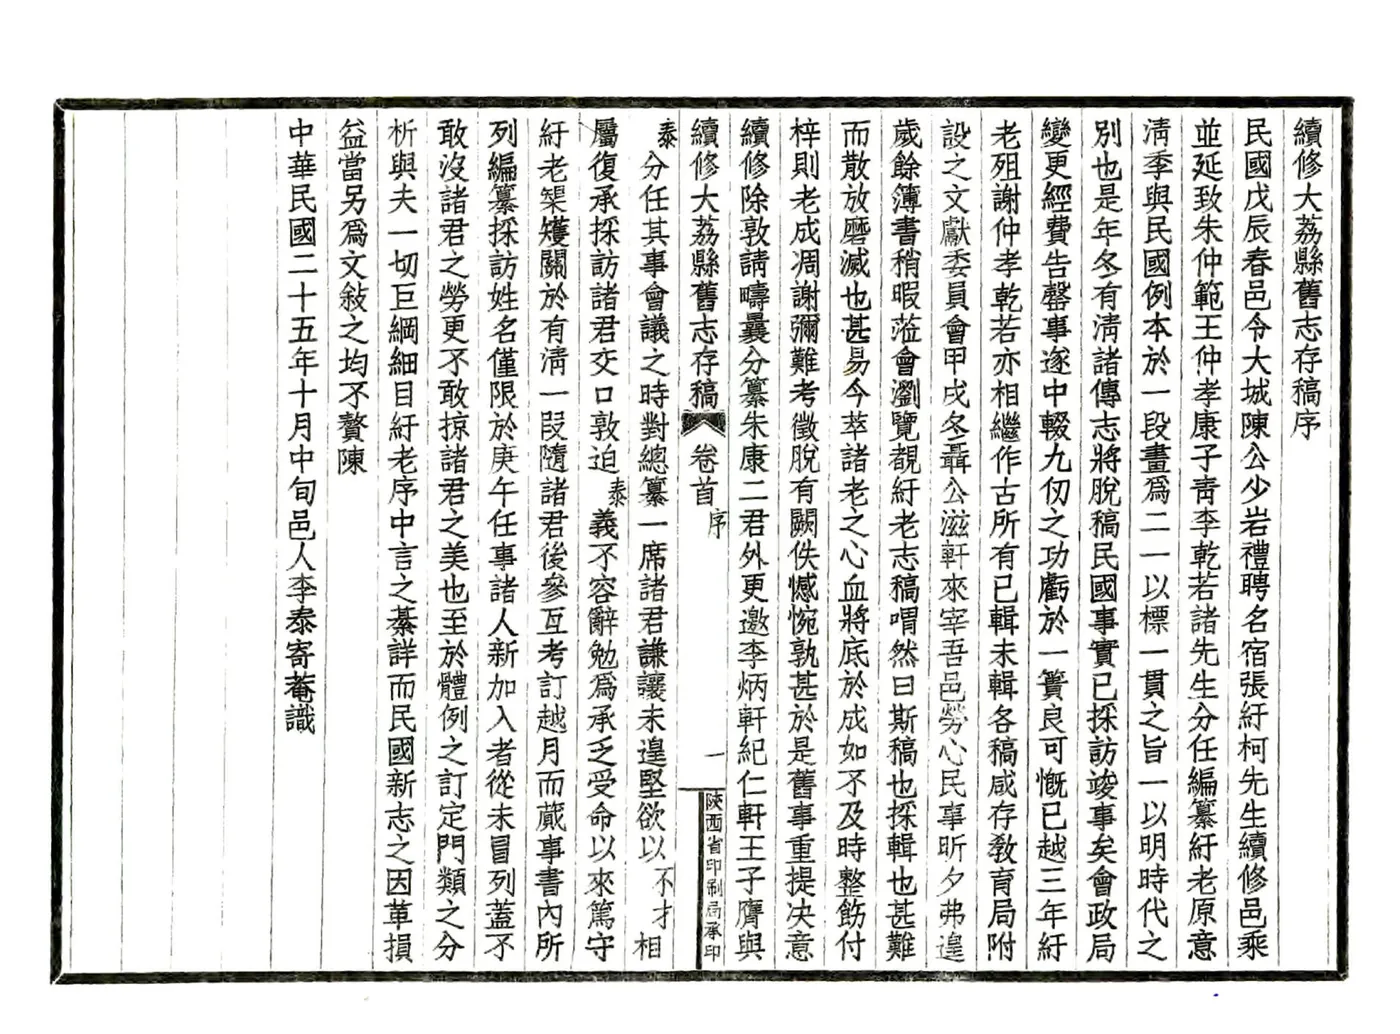 續修大荔縣舊志存稿序
民國戊辰春邑令大城陳公少岩禮聘名宿張紆柯先生續修邑乘
並延致朱仲範王仲孝康子靑李乾若諸先生分任編纂紆老原意
淸季與民國例本於一段畫爲二一以標一貫之旨一以明時代之
別也是年冬有淸諸傳志將脫稿民國事實已採訪竣事矣會政局
變更經費告罄事遂中輟九仞之功虧於一簣良可慨已越三年紆
老殂謝仲孝乾若亦相繼作古所有已輯未輯各稿咸存敎育局附
設之文獻委員會甲戌冬聶公滋軒來宰吾邑勞心民事昕夕弗遑
歲餘簿書稍暇蒞會瀏覽覩紆老志稿喟然曰斯稿也採輯也甚難
而散放磨滅也甚易今萃諸老之心血將底於成如不及時整飭付
梓則老成凋謝彌難考徵脫有闕佚憾惋孰甚於是舊事重提决意
續修除敦請疇曩分纂朱康二君外更邀李炳軒紀仁軒王子膺與
續修大荔縣舊志存稿 卷首 序 一 陝西省印刷局承印
泰分任其事會議之時對總纂一席諸君謙讓未遑堅欲以不才相
屬復承採訪諸君交口敦迫泰義不容辭勉爲承乏受命以來篤守
紆老榘矱關於有淸一段隨諸君後參互考訂越月而蕆事書內所
列編纂採訪姓名僅限於庚午任事諸人新加入者從未冒列蓋不
敢沒諸君之勞更不敢掠諸君之美也至於體例之訂定門類之分
析與夫一切巨綱細目紆老序中言之綦詳而民國新志之因革損
益當另爲文敍之均不贅陳
中華民國二十五年十月中旬邑人李泰寄菴識